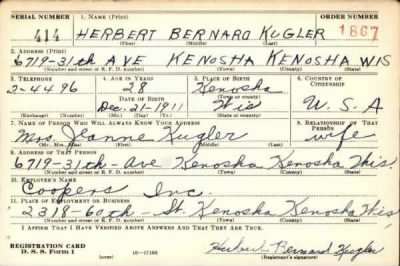 SERIAL NUMBER 1. NAME (Print) ORDER NUMBER
414 HERBERT BERNARD KUGLER 1867
(First) (Middle) (Last)
2. ADDRESS (Print)
6719-31th AVE KENOSHA KENOSHA WIS
(Number and street or R. F. D. number) (Town) (County) (State)
3. TELEPHONE 4. AGE IN YEARS 5. PLACE OF BIRTH 6. COUNTRY OF CITIZENSHIP
2-4496 28 Kenosha
DATE OF BIRTH (Town or county)
Dec. 21-1911 Wis U.S.A
(Exchange) (Number) (Mo.) (Day) (Yr.) (State or country)
7. NAME OF PERSON WHO WILL ALWAYS KNOW YOUR ADDRESS 8. RELATIONSHIP OF THAT PERSON
Mrs. Jeanne Kugler wife
(Mr., Mrs., Miss) (First) (Middle) (Last)
9. ADDRESS OF THAT PERSON
6719-31th-Ave Kenosha Kenosha Wis.
(Number and street or R. F. D. number) (Town) (County) (State)
10. EMPLOYER'S NAME
Coopers Inc.
11. PLACE OF EMPLOYMENT OR BUSINESS
2318-60th-St. Kenosha Kenosha Wis
(Number and street or R. F. D. number) (Town) (County) (State)
I AFFIRM THAT I HAVE VERIFIED ABOVE ANSWERS AND THAT THEY ARE TRUE.
REGISTRATION CARD
D. S. S. Form 1 (over) 16-17105 Herbert Bernard Kugler
(Registrant's signature)